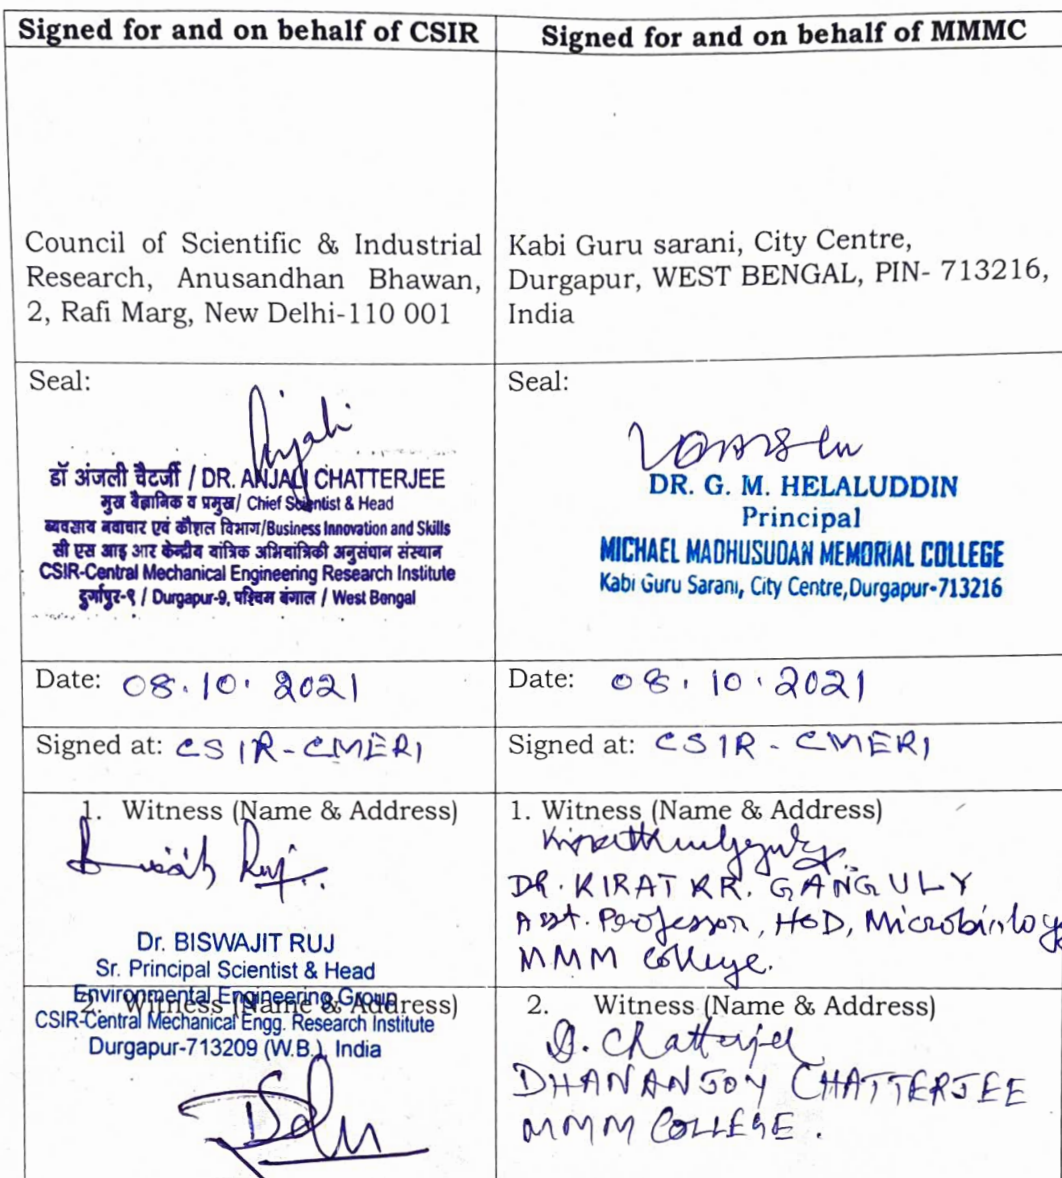 Signed for and on behalf of CSIR
Signed for and on behalf of MMMC
Council of Scientific & Industrial
Research, Anusandhan Bhawan,
2, Rafi Marg, New Delhi-110 001
Kabi Guru sarani, City Centre,
Durgapur, WEST BENGAL, PIN- 713216,
India
Seal:
Anjali
डॉ अंजली चैटर्जी / DR. ANJALI CHATTERJEE
मुख वैज्ञानिक व प्रमुख/ Chief Scientist & Head
व्यवसाय नवाचार एवं कौशल विभाग/Business Innovation and Skills
सी एस आइ आर केन्द्रीय यांत्रिक अभियांत्रिकी अनुसंधान संस्थान
CSIR-Central Mechanical Engineering Research Institute
दुर्गापुर-९ / Durgapur-9, पश्चिम बंगाल / West Bengal
Seal:
DR. G. M. HELALUDDIN
Principal
MICHAEL MADHUSUDAN MEMORIAL COLLEGE
Kabi Guru Sarani, City Centre,Durgapur-713216
Date: 08.10.2021
Date: 08.10.2021
Signed at: CSIR-CMERI
Signed at: CSIR-CMERI
1. Witness (Name & Address)
Dr. BISWAJIT RUJ
Sr. Principal Scientist & Head
Environmental Engineering Group
CSIR-Central Mechanical Engg. Research Institute
Durgapur-713209 (W.B.), India
1. Witness (Name & Address)
DR. KIRAT KR. GANGULY
Asst. Professor, HOD, Microbiology
MMM College.
2. Witness (Name & Address)
2. Witness (Name & Address)
D. Chatterjee
DHANANJOY CHATTERJEE
MMM COLLEGE.